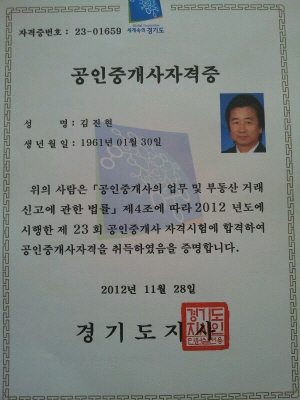 자격증번호 : 23-01659
세계속의 경기도
공인중개사자격증
성 명 : 김진현
생년월일 : 1961년 01월 30일
위의 사람은 「공인중개사의 업무 및 부동산 거래
신고에 관한 법률」 제4조에 따라 2012 년도에
시행한 제 23 회 공인중개사 자격시험에 합격하여
공인중개사자격을 취득하였음을 증명합니다.
2012년 11월 28일
경기도지사
경기도
지사인